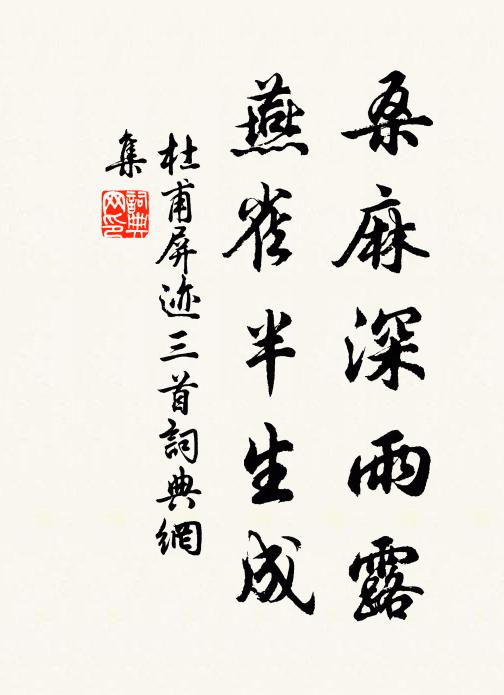 桑麻深雨露
燕雀半生成
杜甫屏迹三首詞典網
集
詞典
网印